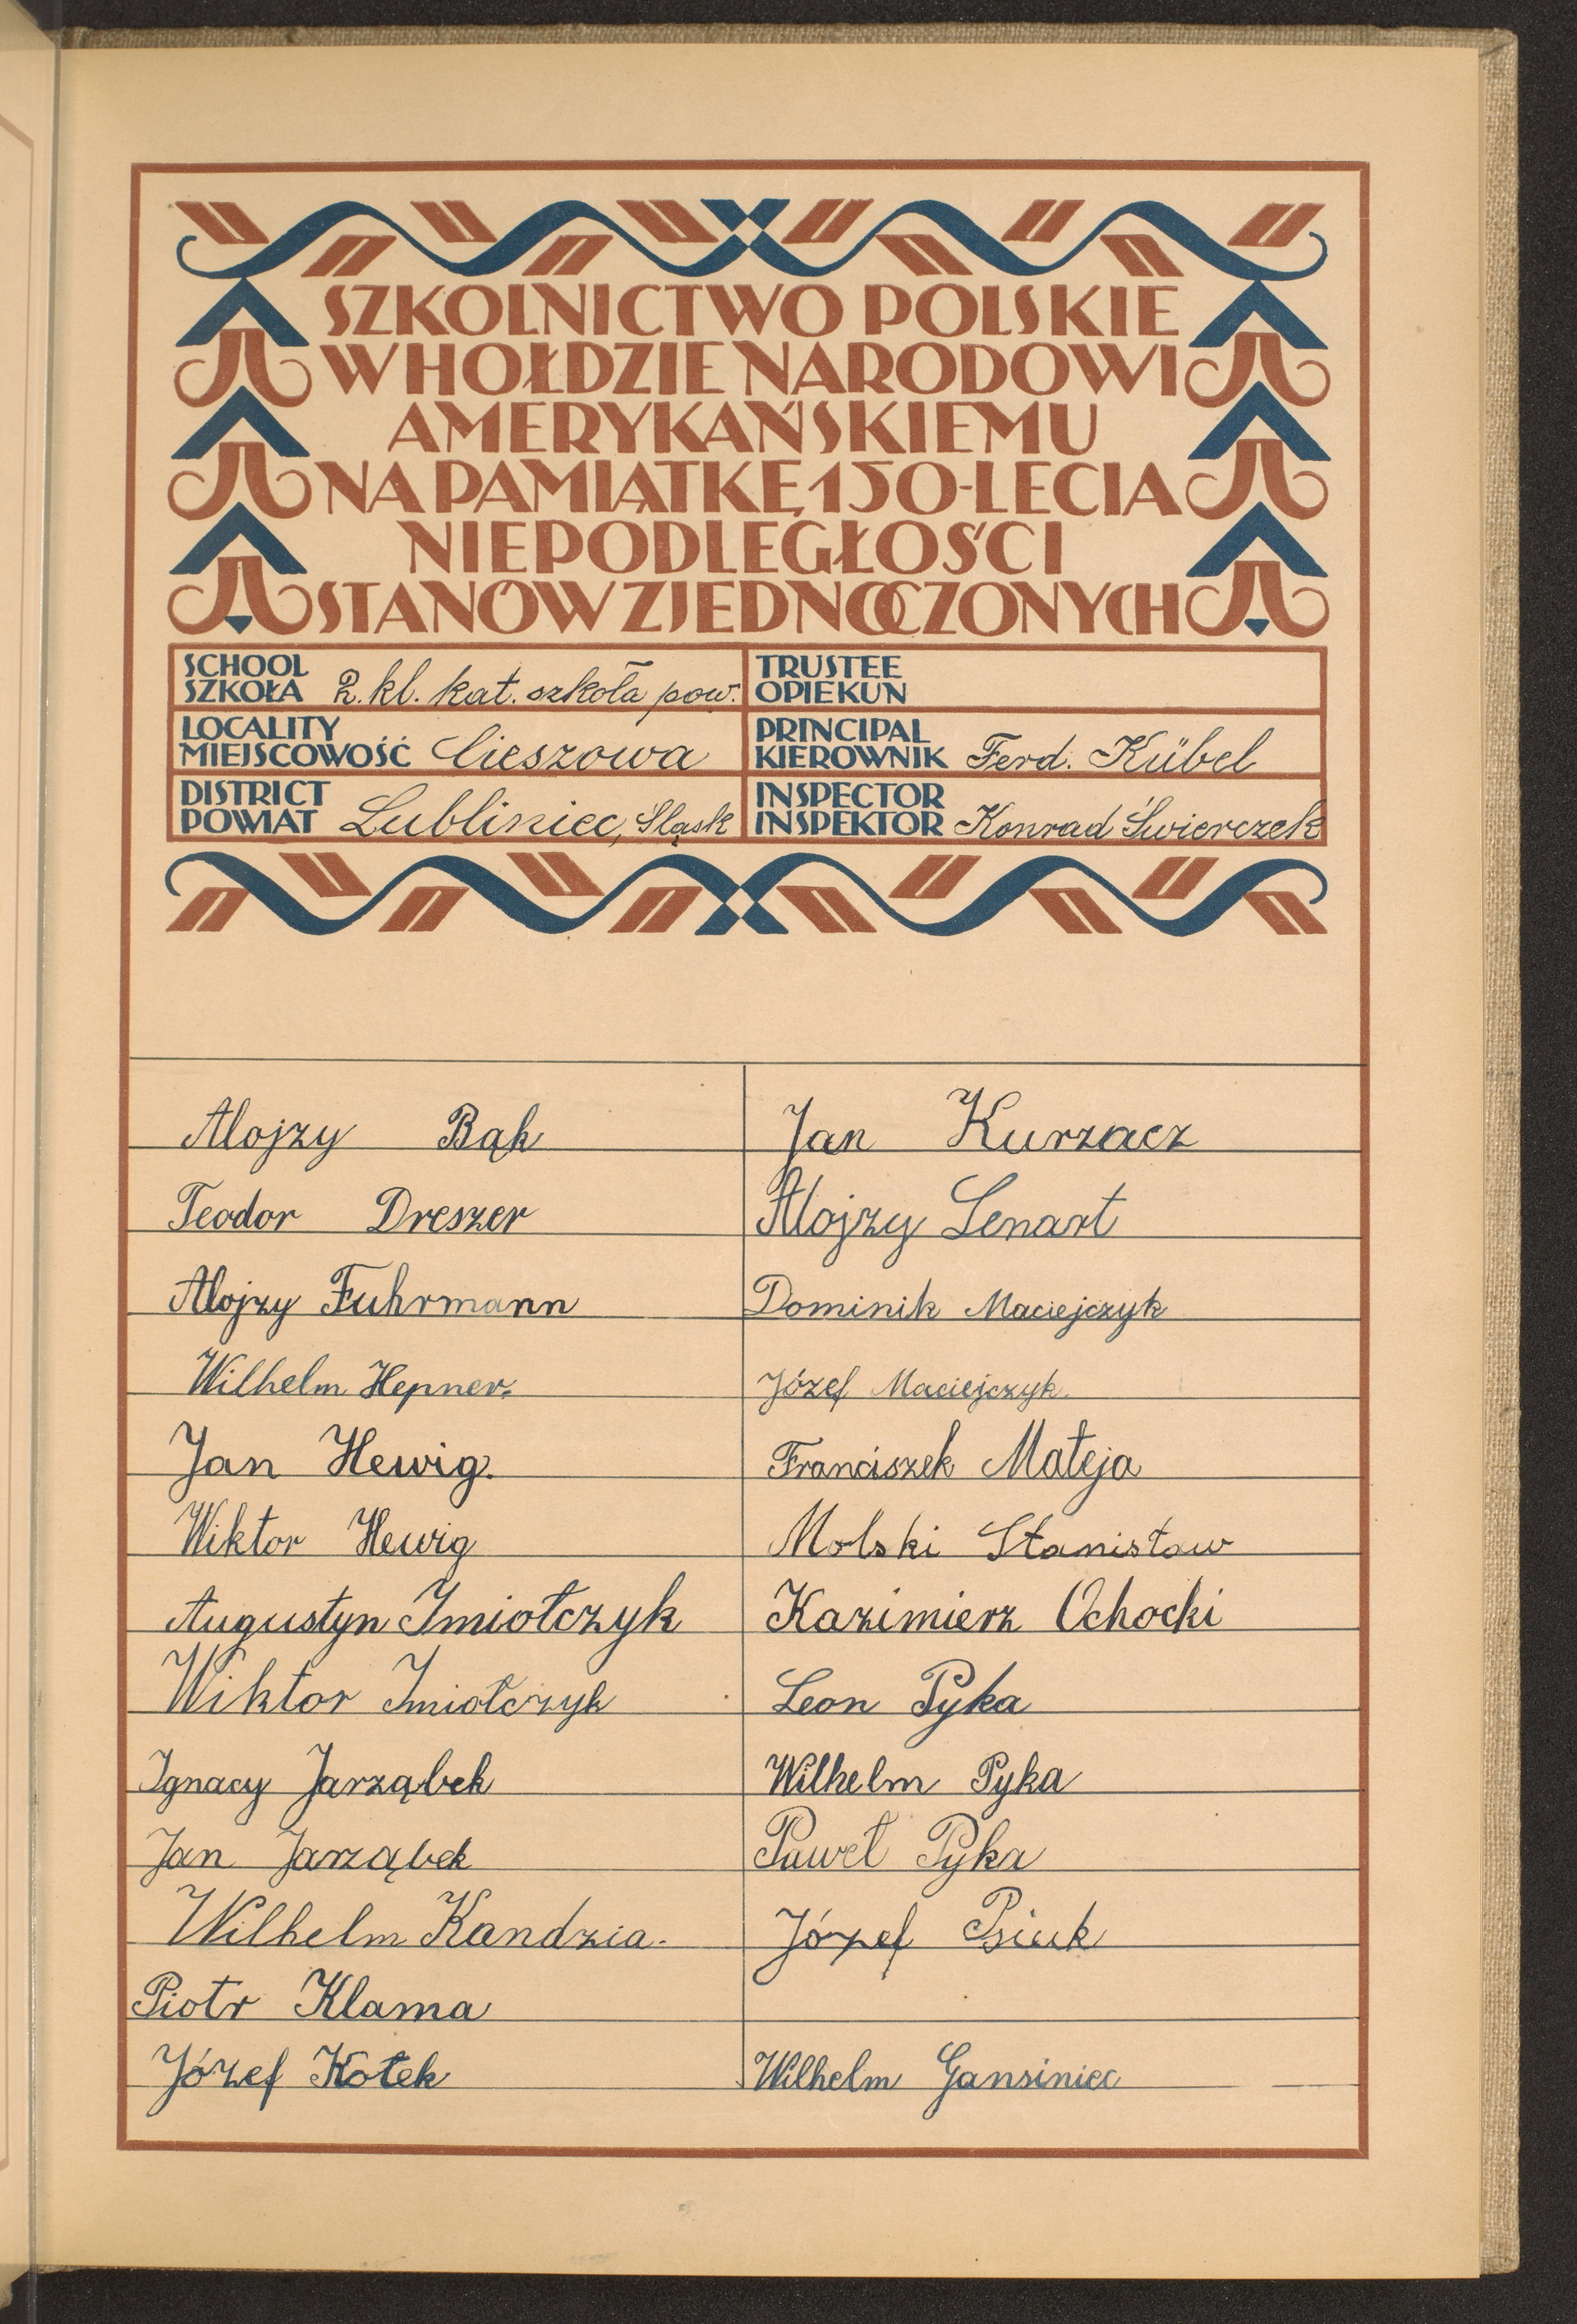 SZKOLNICTWO POLSKIE
W HOŁDZIE NARODOWI
AMERYKAŃSKIEMU
NA PAMIĄTKĘ 150-LECIA
NIEPODLEGŁOŚCI
STANÓW ZJEDNOCZONYCH
SCHOOL
SZKOŁA 2. kl. kat. szkoła pow.
TRUSTEE
OPIEKUN
LOCALITY
MIEJSCOWOŚĆ Cieszowa
PRINCIPAL
KIEROWNIK Ferd. Kübel
DISTRICT
POWIAT Lubliniec, Śląsk
INSPECTOR
INSPEKTOR Konrad Świerczek
Alojzy Bąk
Teodor Dreszer
Alojzy Fuhrmann
Wilhelm Hepner.
Jan Hewig.
Wiktor Hewig
Augustyn Imiołczyk
Wiktor Imiołczyk
Ignacy Jarząbek
Jan Jarząbek
Wilhelm Kandzia.
Piotr Klama
Józef Kołek
Jan Kurzacz
Alojzy Lenart
Dominik Maciejczyk
Józef Maciejczyk.
Franciszek Mateja
Molski Stanisław
Kazimierz Ochocki
Leon Pyka
Wilhelm Pyka
Paweł Pyka
Józef Psiuk
Wilhelm Gansiniec